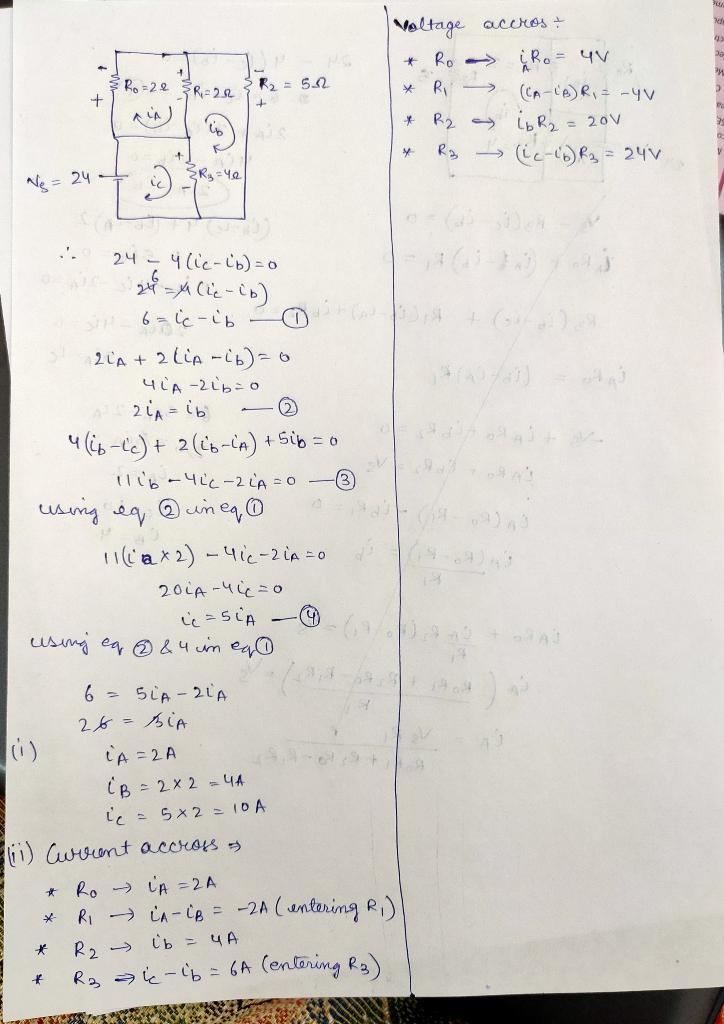 R₀=2Ω
R₁=2Ω
R₂ = 5Ω
iA
ib
Vs = 24
ic
R₃=4Ω
∴ 24 - 4(ic-ib)=0
24 6 = 4(ic-ib)
6 = ic-ib — ①
2iA + 2(iA-ib) = 0
4iA-2ib=0
2iA = ib — ②
4(ib-ic) + 2(ib-iA) + 5ib = 0
11ib-4ic-2iA=0 — ③
using eq ② in eq ①
11(ia×2) - 4ic-2iA=0
20iA-4ic=0
ic=5iA — ④
using eq ② & 4 in eq ①
6 = 5iA-2iA
2 6 = 3iA
(i) iA = 2A
iB = 2×2 = 4A
ic = 5×2 = 10A
(ii) Current accross ⇒
* R₀ → iA = 2A
* R₁ → iA-iB = -2A (entering R₁)
* R₂ → ib = 4A
* R₃ ⇒ ic-ib = 6A (entering R₃)
Voltage accros :-
* R₀ → iAR₀ = 4V
* R₁ → (iA-iB)R₁ = -4V
* R₂ → ibR₂ = 20V
* R₃ → (ic-ib)R₃ = 24V